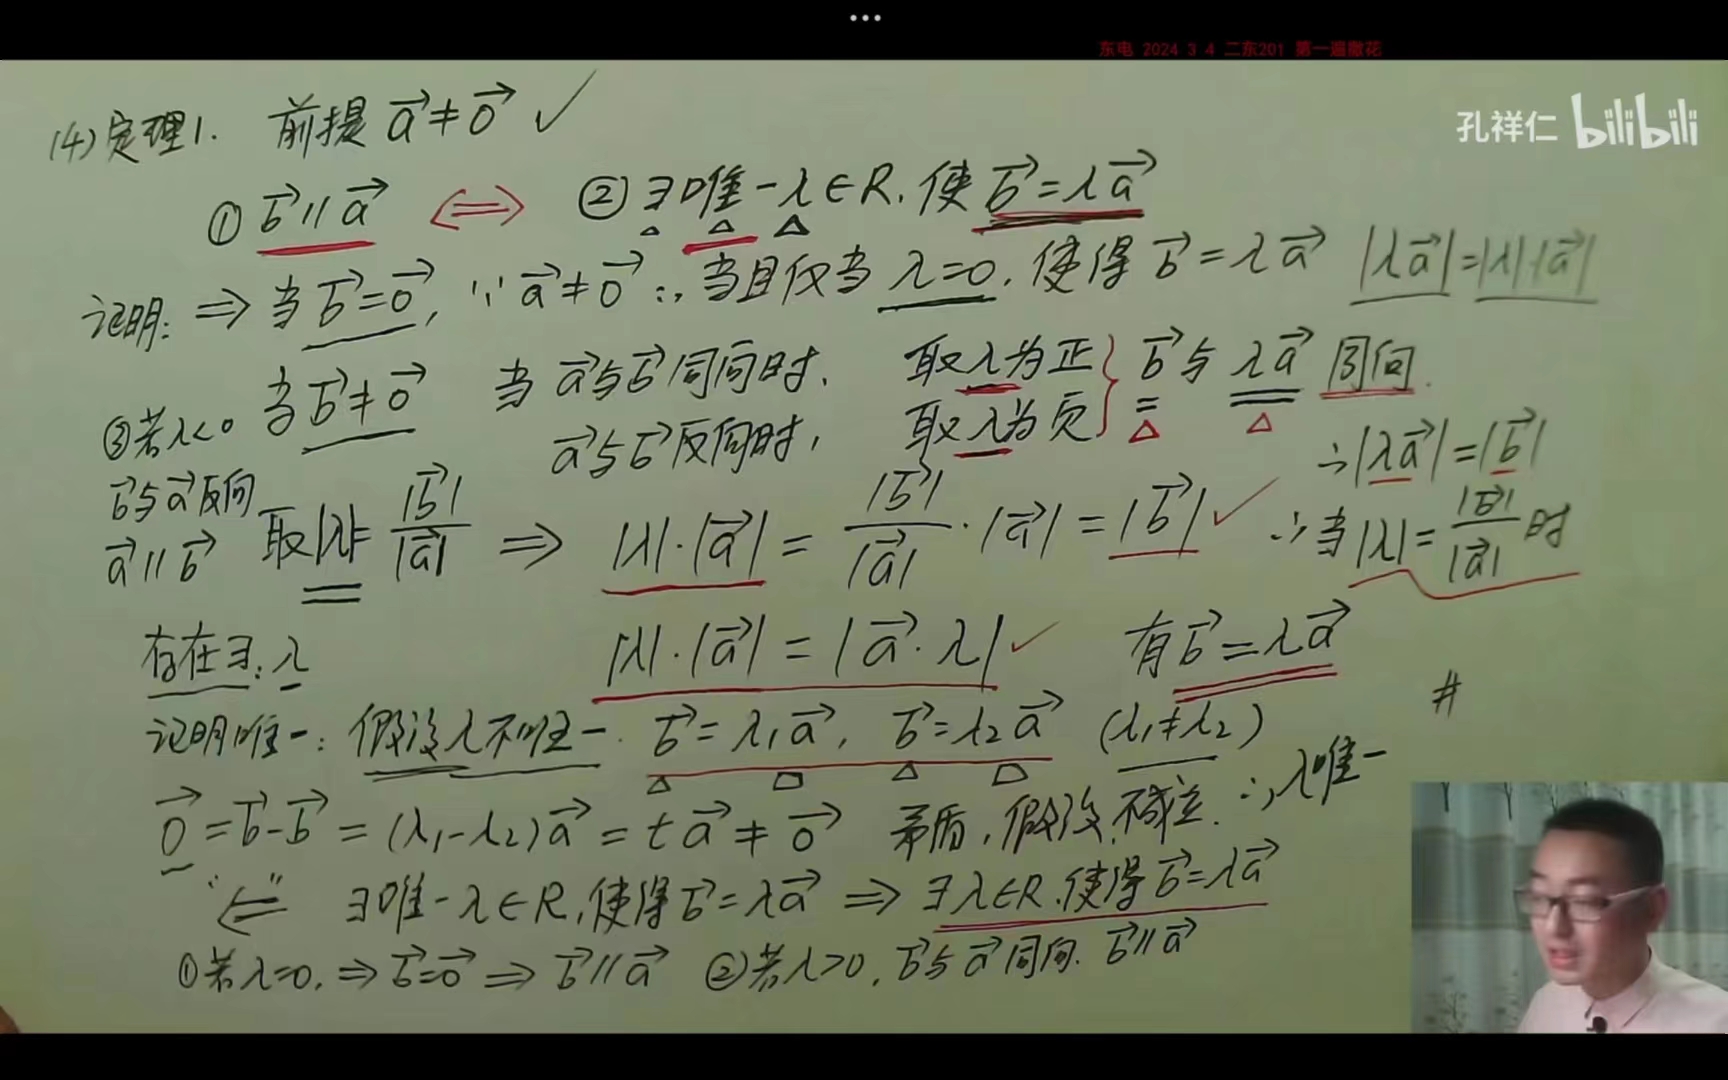 ...
东电 2024 3 4 二东201 第一遍撒花
孔祥仁 bilibili
(4) 定理1. 前提 a⃗≠0⃗ ✓
① b⃗ // a⃗ ⟺ ② ∃唯一λ∈R, 使 b⃗=λa⃗
证明: ⇒ 当 b⃗=0⃗, ∵ a⃗≠0⃗ ∴ 当且仅当 λ=0, 使得 b⃗=λa⃗ |λa⃗|=|λ|·|a⃗|
当 b⃗≠0⃗ 当 a⃗与b⃗同向时, 取λ为正 } b⃗与λa⃗ 同向.
a⃗与b⃗反向时, 取λ为负
∴|λa⃗|=|b⃗|
取|λ|=|b⃗|/|a⃗| ⇒ |λ|·|a⃗| = |b⃗|/|a⃗| · |a⃗| = |b⃗| ✓ ∴当|λ|=|b⃗|/|a⃗| 时
|λ|·|a⃗| = |a⃗·λ| ✓ 有 b⃗=λa⃗
存在∃: λ
证明唯一: 假设λ不唯一. b⃗=λ₁a⃗, b⃗=λ₂a⃗ (λ₁≠λ₂) #
0⃗=b⃗-b⃗=(λ₁-λ₂)a⃗=ta⃗≠0⃗ 矛盾, 假设不成立. ∴λ唯一
"⇐" ∃唯一λ∈R, 使得 b⃗=λa⃗ ⇒ ∃λ∈R, 使得 b⃗=λa⃗
①若λ=0, ⇒ b⃗=0⃗ ⇒ b⃗//a⃗ ②若λ>0, b⃗与a⃗同向. b⃗//a⃗
③若λ<0
b⃗与a⃗反向
a⃗//b⃗